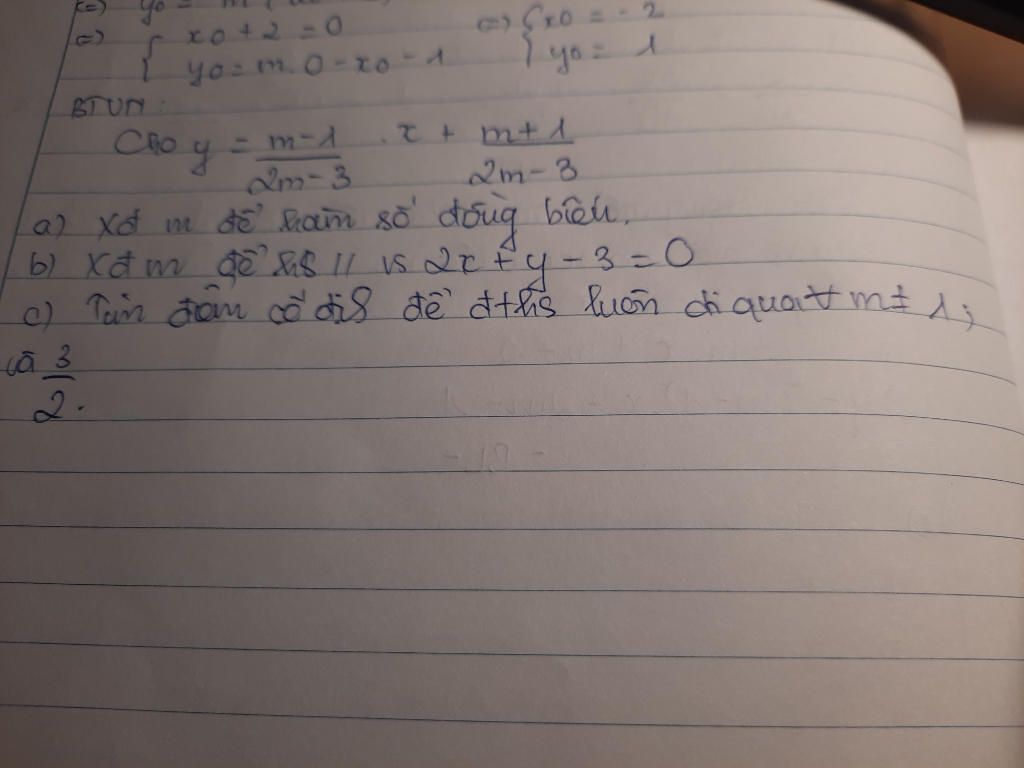 <=> y0 = m
<=> { x0 + 2 = 0 <=> { x0 = -2
y0 = m.0 - x0 - 1 y0 = 1
BTVN:
Cho y = \frac{m-1}{2m-3} . x + \frac{m+1}{2m-3}
a) Xđ m để hàm số đồng biến.
b) Xđ m để hs // vs 2x + y - 3 = 0
c) Tìm điểm cố đị để đths luôn đi qua ∀ m ≠ 1;
và \frac{3}{2}.